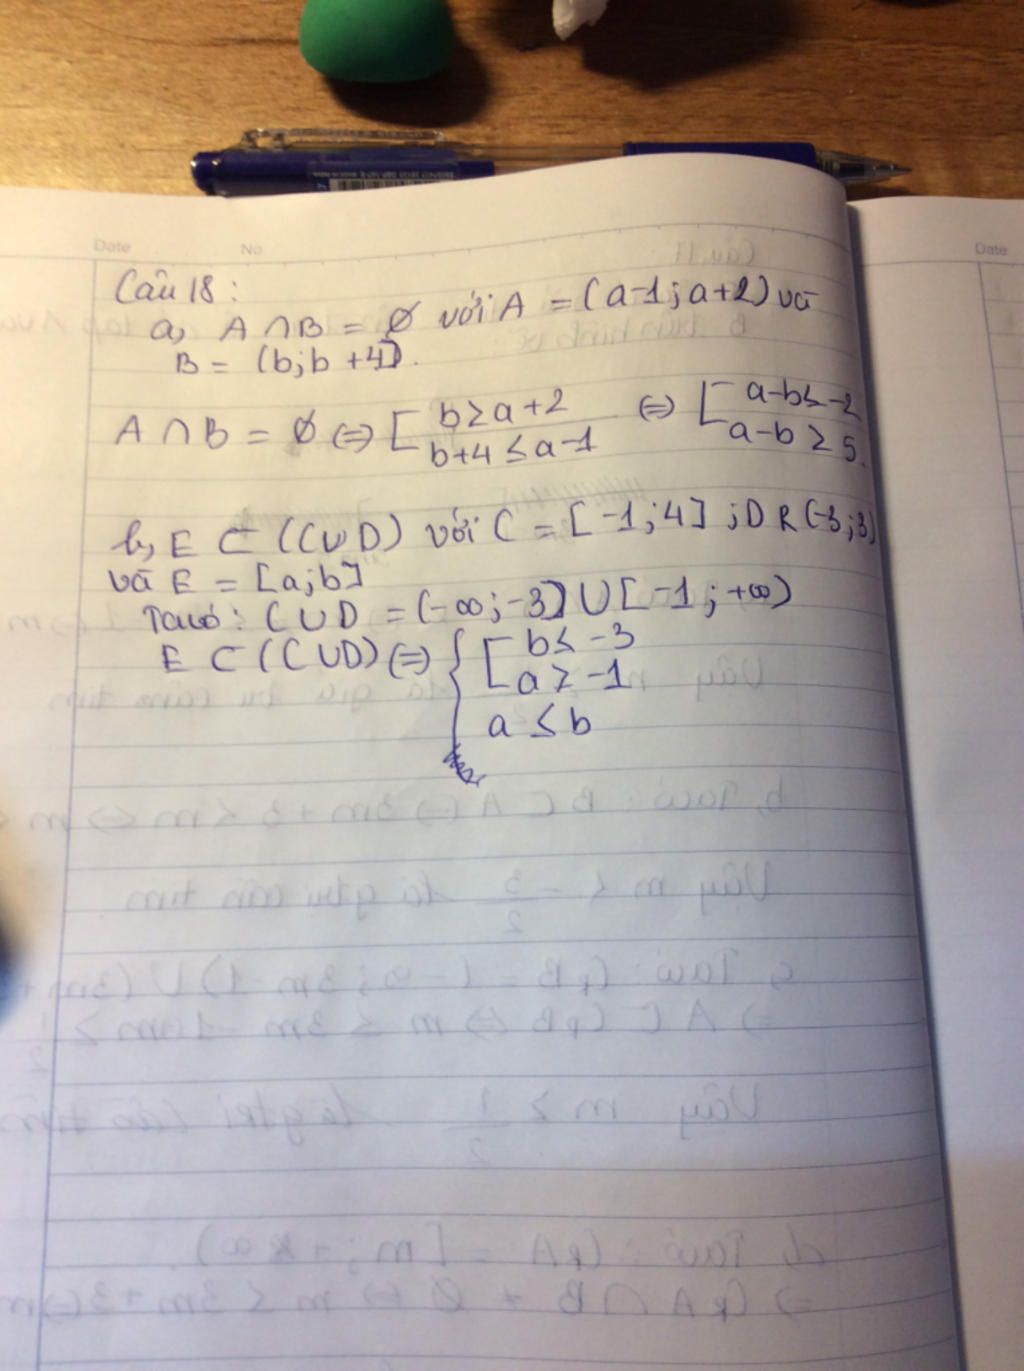 Date No Date
Câu 18:
a, A ∩ B = ∅ với A = (a-1; a+2) và
B = (b; b+4].
A ∩ B = ∅ ⇔ [ b ≥ a+2 ⇔ [ a-b ≤ -2
b+4 ≤ a-1 a-b ≥ 5.
b, E ⊂ (C∪D) với C = [-1; 4] ; D R (-3; 3)
và E = [a; b]
Ta có: C ∪ D = (-∞; -3] ∪ [-1; +∞)
E ⊂ (C∪D) ⇔ { [ b ≤ -3
a ≥ -1
a ≤ b